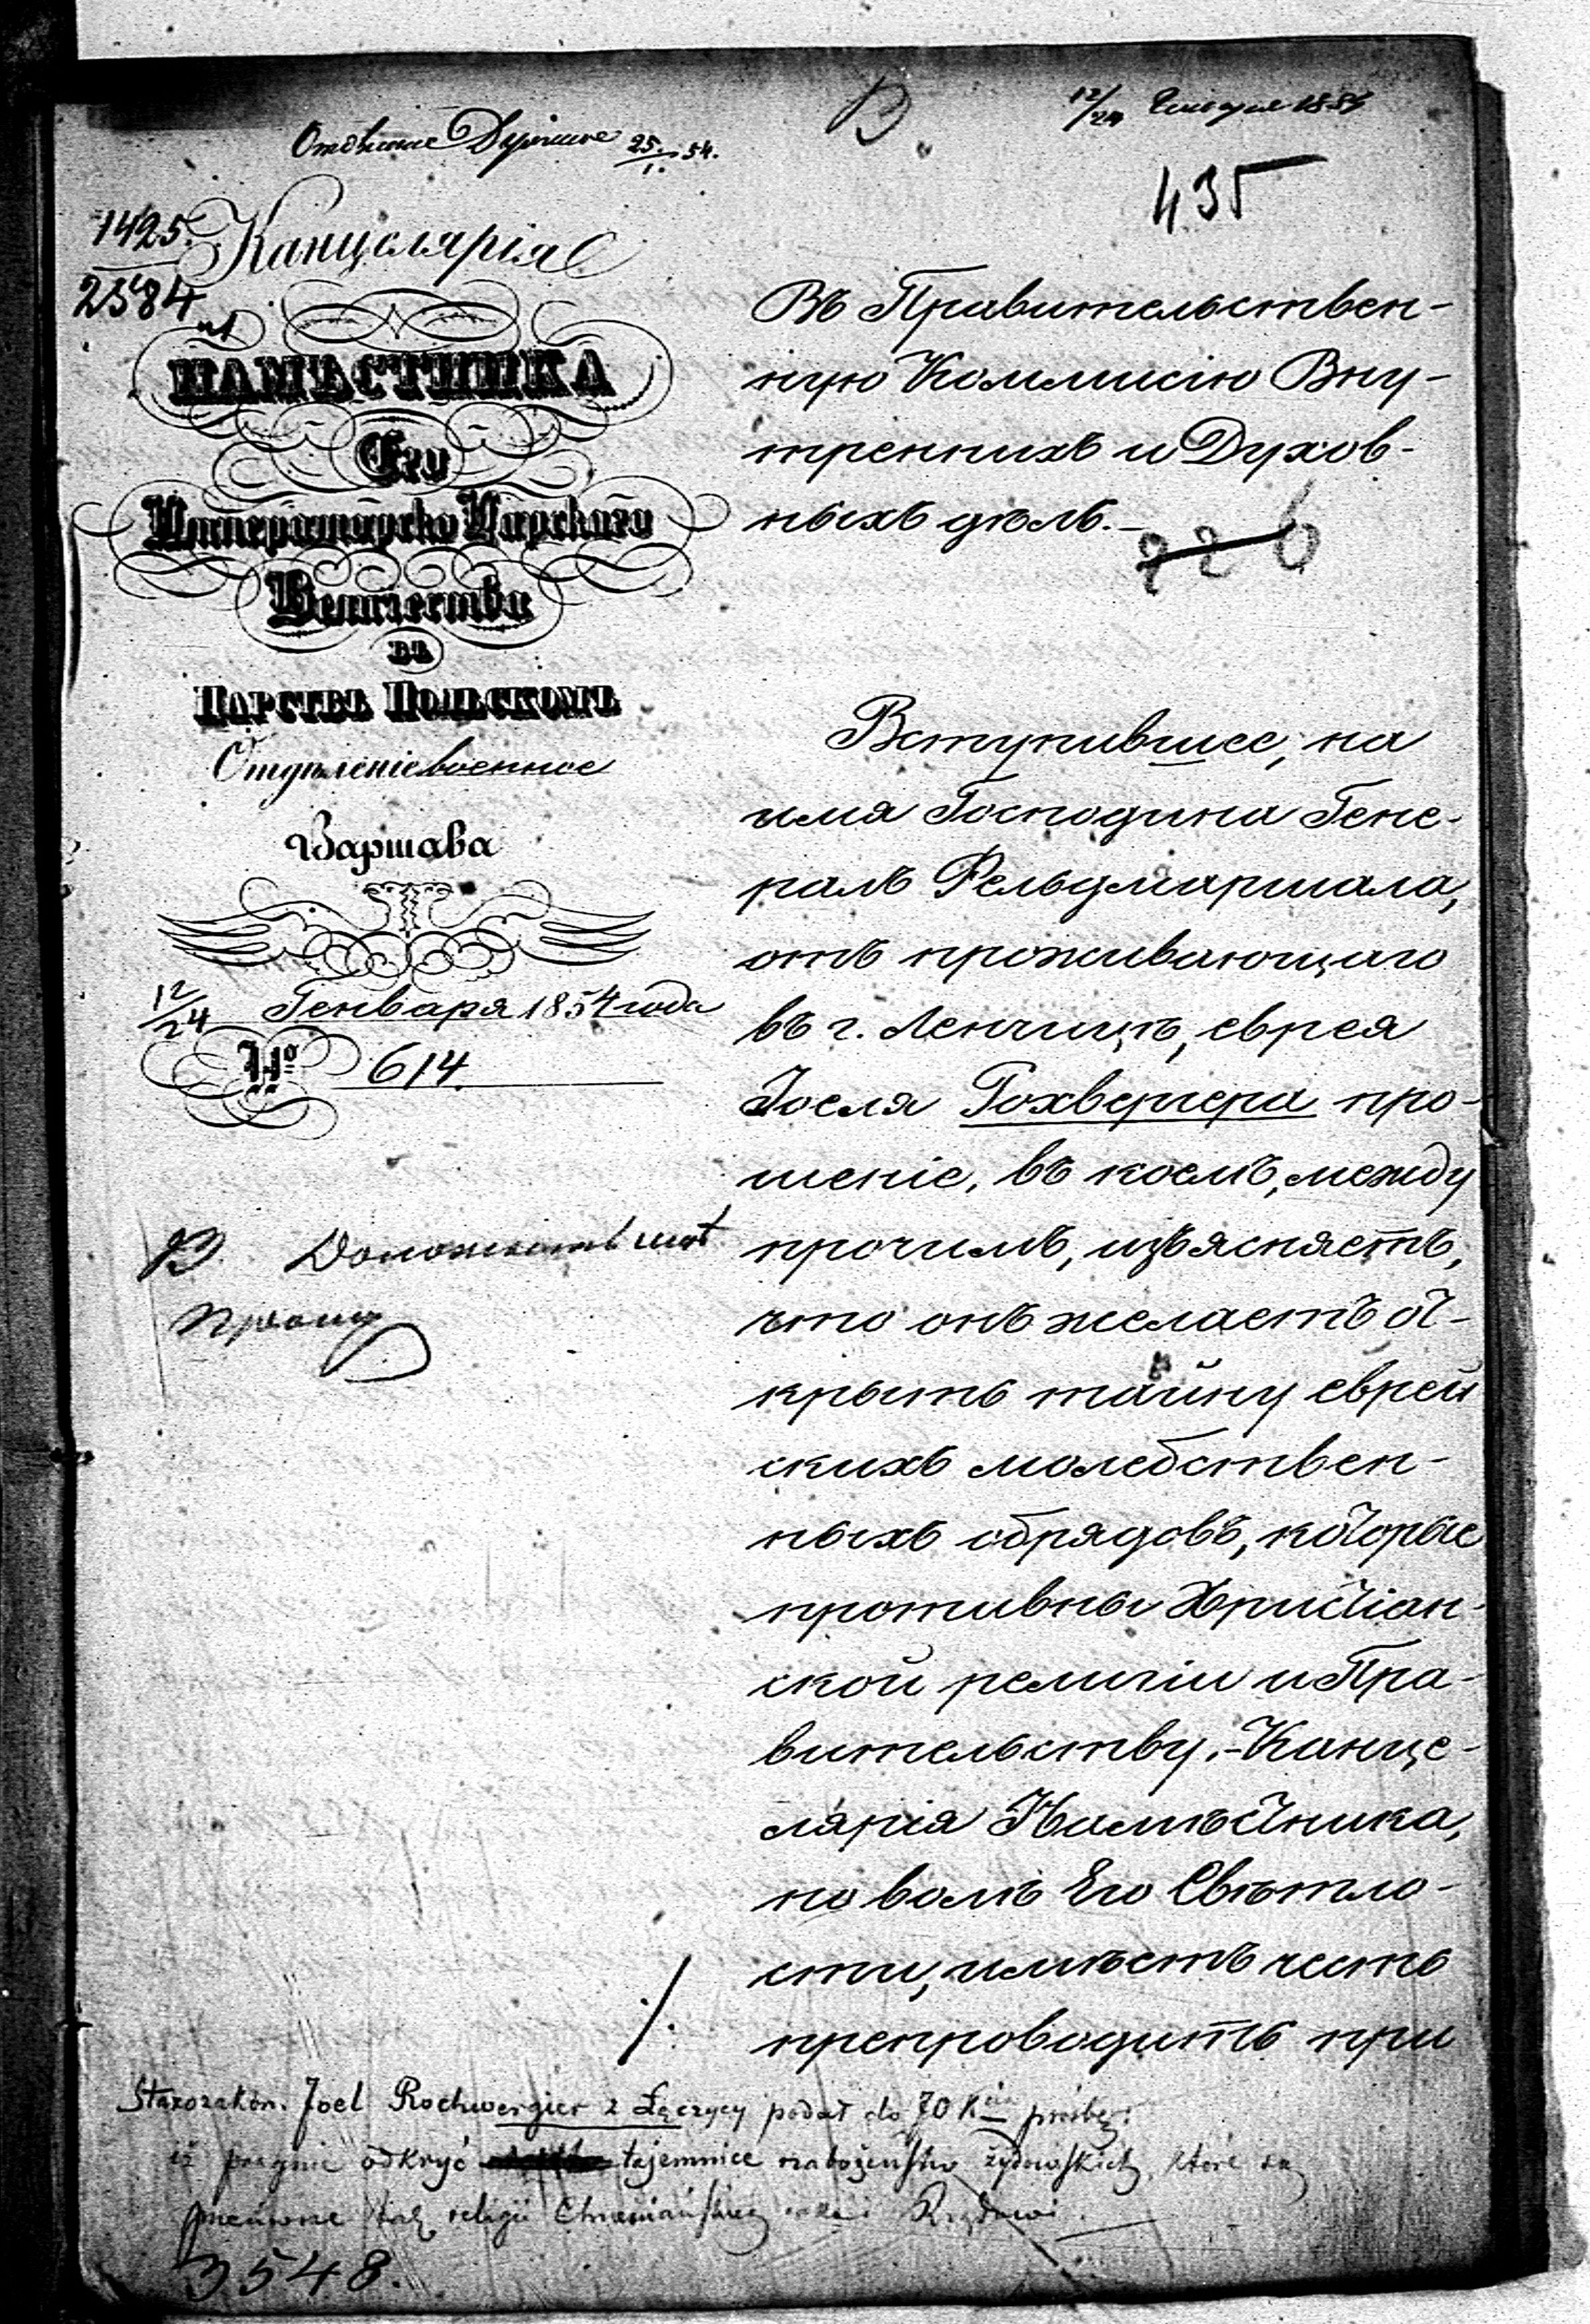 12/24 Генваря 1854
25/1. 54.
435
1425.
2584
Канцелярія
НАМѢСТНИКА
Его
Императорско Царскаго
Величества
въ
Царствѣ Польскомъ
Отдѣленіе военное
Варшава
12/24 Генваря 1854 года
№ 614.
Въ Правительствен-
ную Коммисію Вну-
треннихъ и Духов-
ныхъ дѣлъ.-
226
Вступившее, на
имя Господина Гене-
ралъ Фельдмаршала,
отъ проживающаго
въ г. Ленчицѣ, еврея
Іоеля Рохвергера про-
шеніе, въ коемъ, между
прочимъ, изъясняетъ,
что онъ желаетъ от-
крыть тайну еврей
скихъ молебствен-
ныхъ обрядовъ, которые
противны Христіан-
ской религіи и Пра-
вительству.-Канце-
лярія Намѣстника,
по волѣ Его Свѣтло-
сти, имѣетъ честь
препроводить при
Starozakon. Joel Rochwergier z Łęczycy podał do JO Kcia prośbę:
iż pragnie odkryć tajemnice nabożeństw żydowskich, które są
przeciwne tak religii Chrześciańskiej Rządowi.
3548.